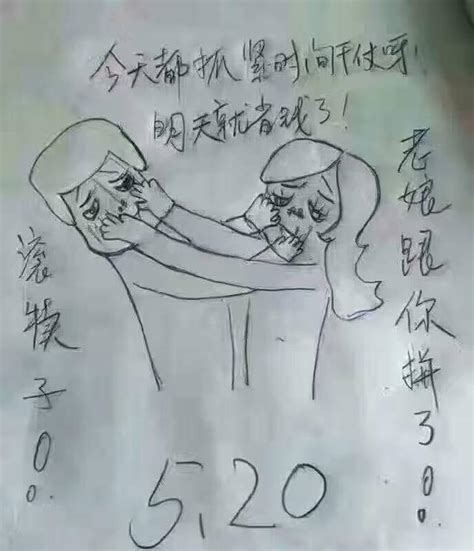 今天都抓紧时间干仗呀!
明天就省钱了!
滚犊子!!
老娘跟你拼了!!
5.20